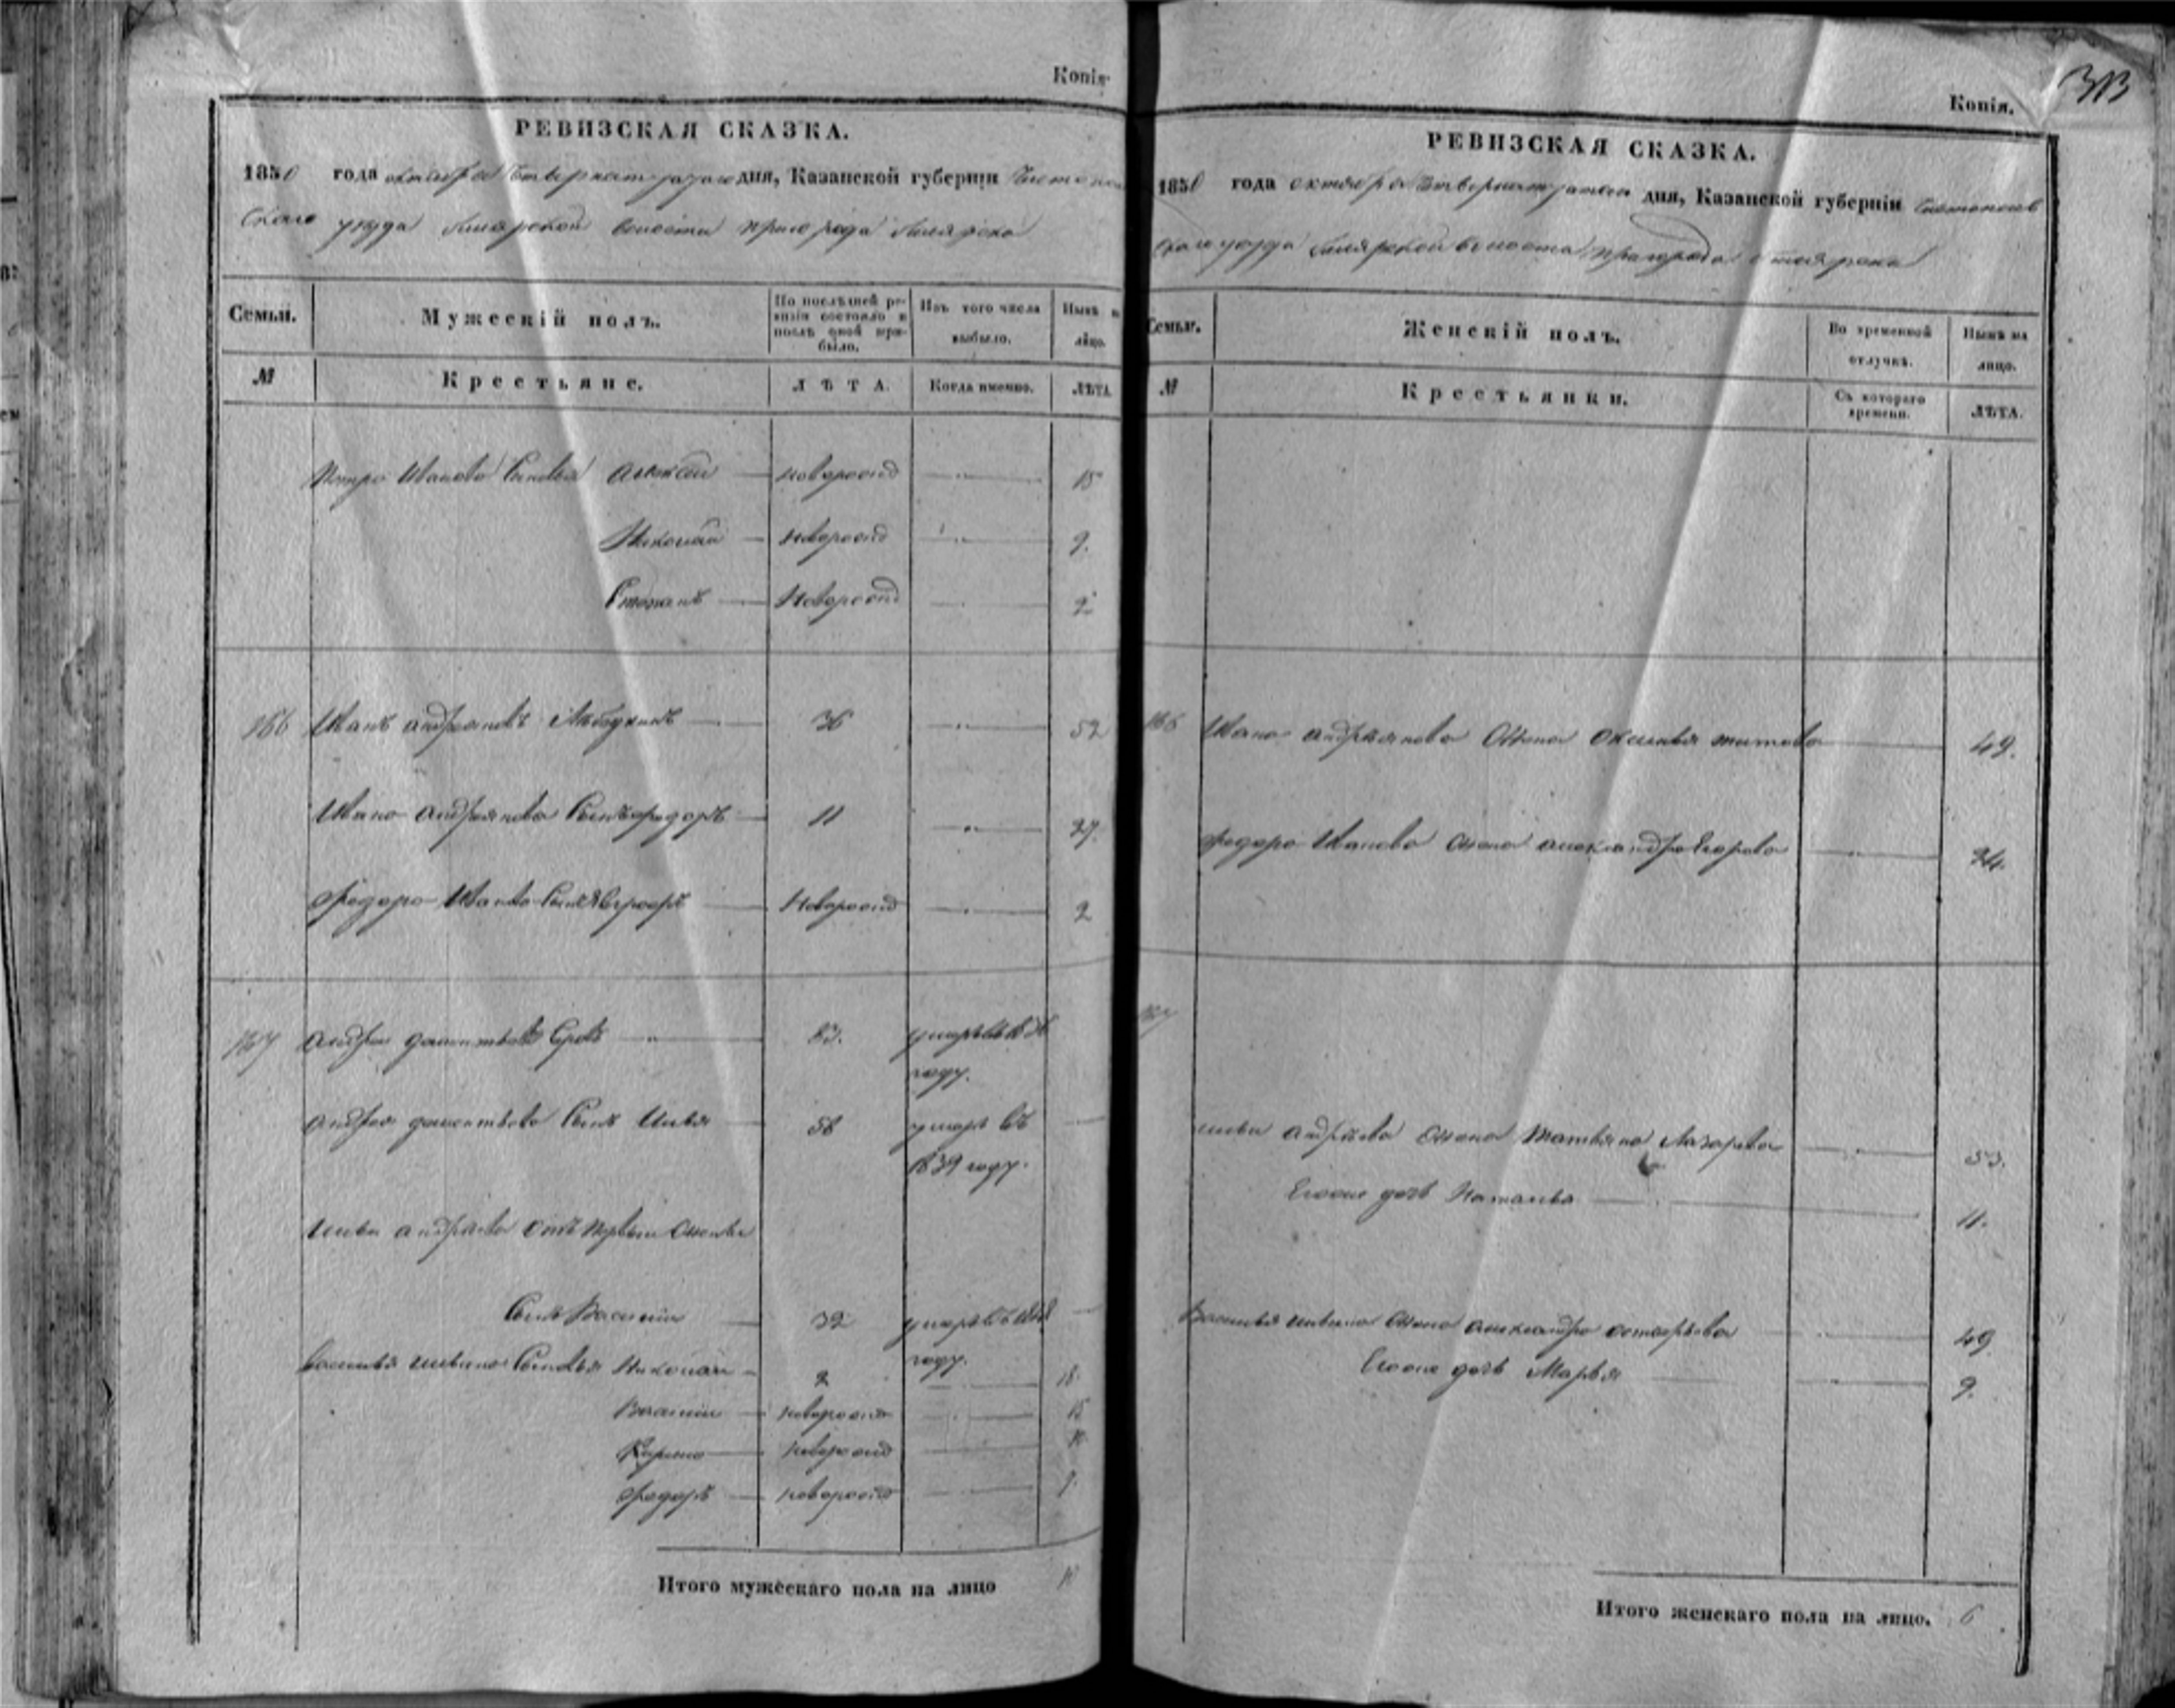 Копія
РЕВИЗСКАЯ СКАЗКА.
1850 года октября дня, Казанской губерніи
скаго уезда Билярской волости пригорода Билярска
Семьи. Мужескій полъ. По послѣдней ревизіи состояло и послѣ оной прибыло. Изъ того числа выбыло. Нынѣ на лицо.
№ Крестьяне. ЛѢТА. Когда именно. ЛѢТА
Петра Иванова сыновья Алексей новорожд 15
Николай новорожд 9.
Степанъ новорожд 2
166 Иванъ Андреяновъ 36 52
Ивана Андреянова сынъ Федоръ 11 27.
Федора Иванова сынъ новорожд 2
167 Андрей 83. умеръ въ
году.
Андрея сынъ Илья 56 умеръ въ
1839 году.
Ильи Андреева отъ первой жены
сынъ Василий 32 умеръ въ 1848
году.
Василья Ильина сыновья Николай 2 18.
Василий новорожд 15
новорожд
Федоръ новорожд 9.
Итого мужескаго пола на лицо 10
313
Копія.
РЕВИЗСКАЯ СКАЗКА.
1850 года октября дня, Казанской губерніи
скаго уезда Билярской волости пригорода Билярска
Семьи. Женскій полъ. Во временной отлучкѣ. Нынѣ на лицо.
№ Крестьянки. Съ котораго времени. ЛѢТА.
166 Ивана Андреянова жена Акилина Титова 49.
Федора Иванова жена Александра Егорова 24.
167
Ильи Андреева жена Татьяна Лазарева 53.
Егоже дочь Наталья 11.
Василья Ильина жена Александра 49
Егоже дочь Марья 9.
Итого женскаго пола на лицо. 6